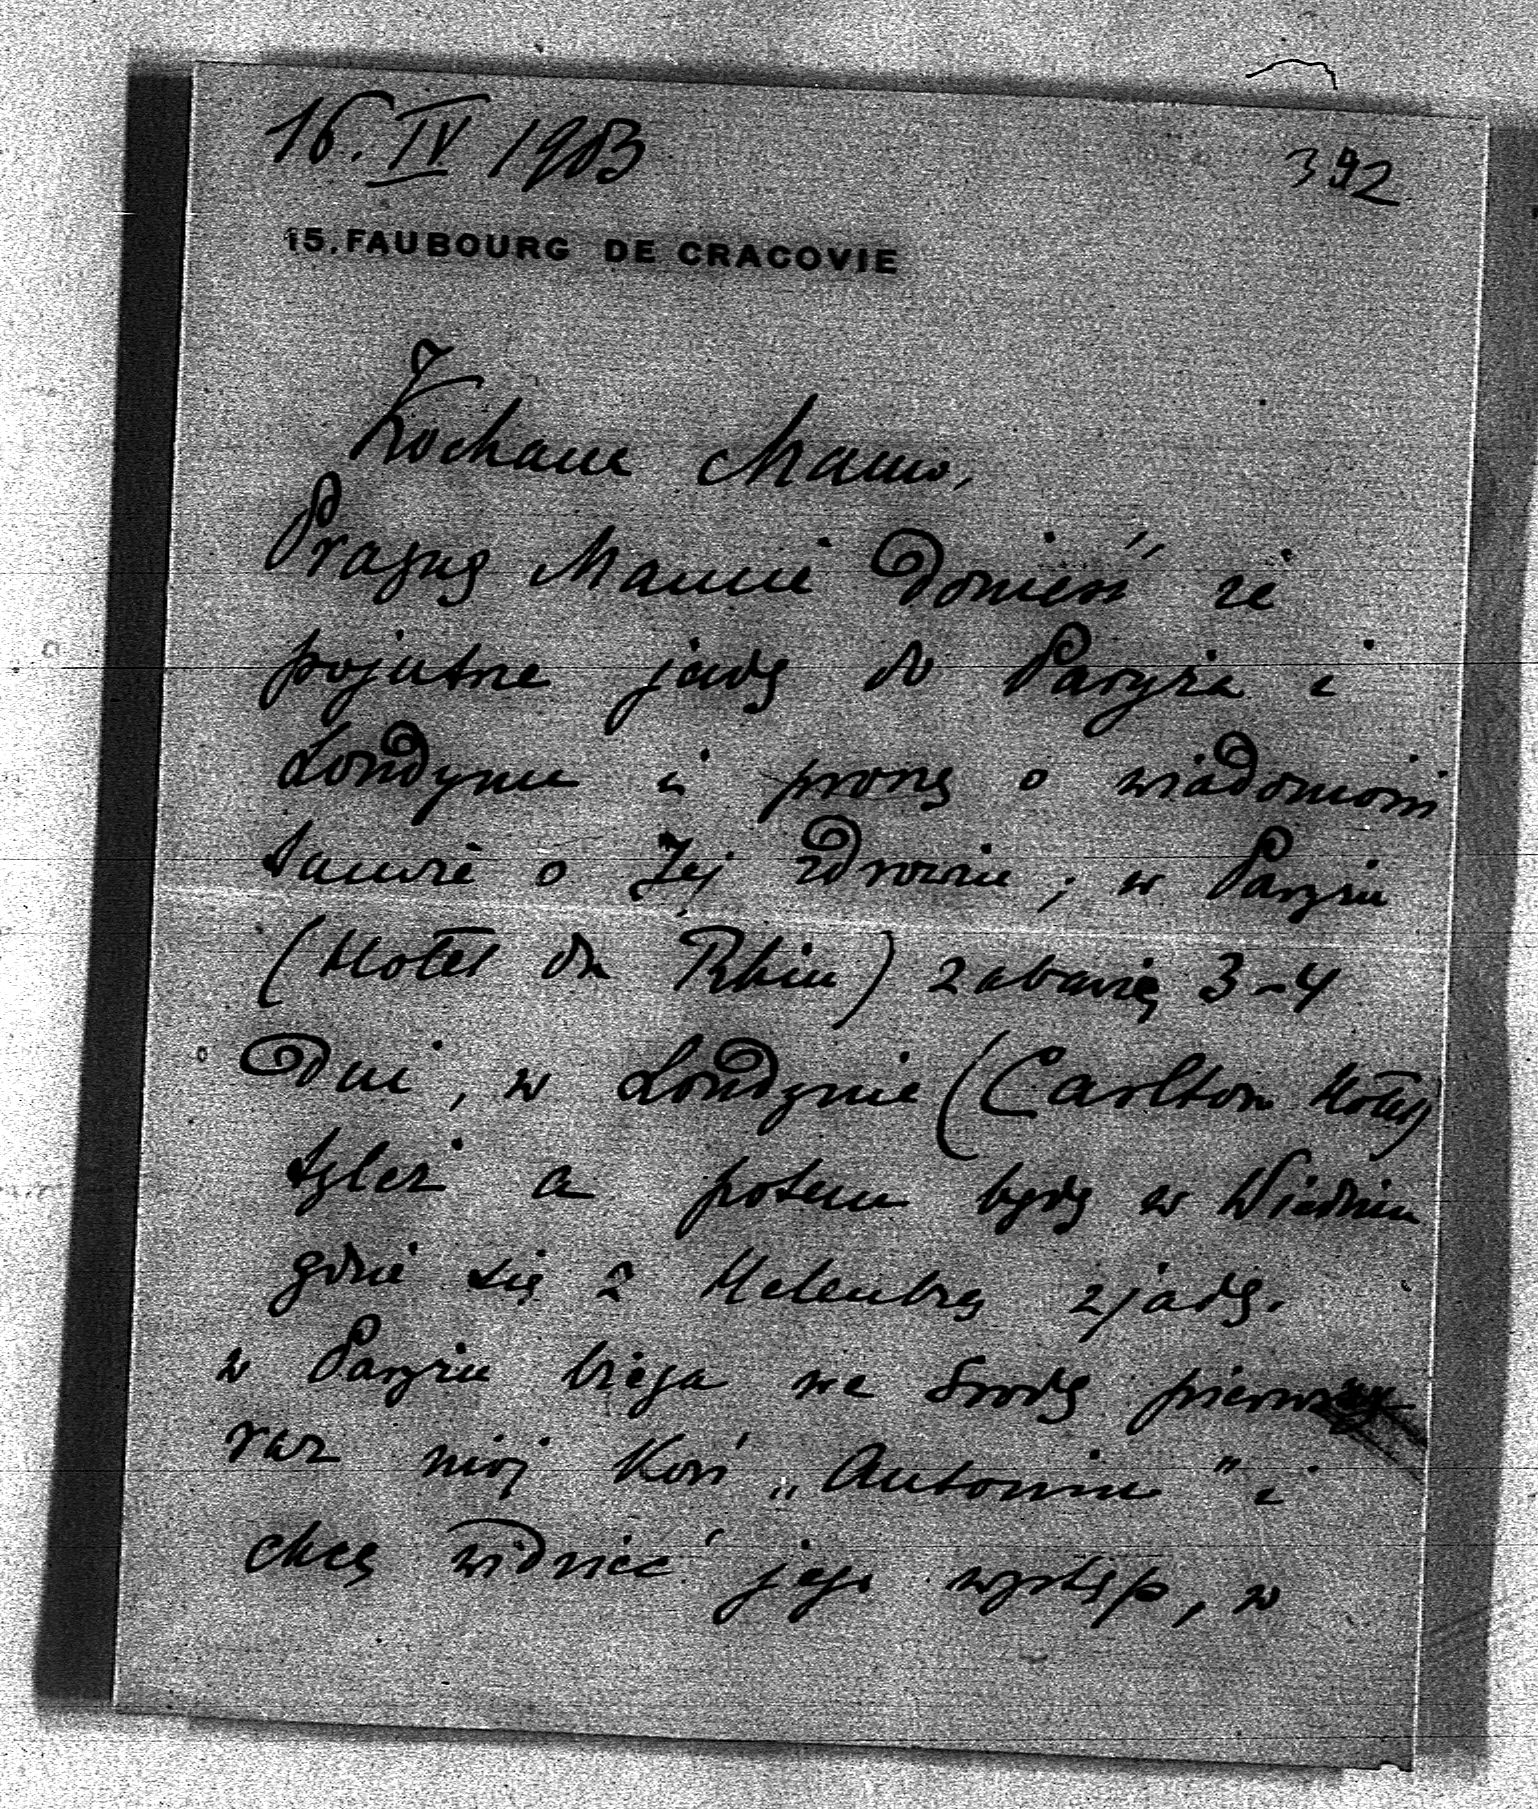 16. IV 1903
392
15, FAUBOURG DE CRACOVIE
Kochana Mamo,
Pragnę Mamie donieść że
pojutrze jadę do Paryża i
Londynu i proszę o wiadomość
tamże o Jej zdrowiu; w Paryżu
(Hotel du Rhin) zabawię 3-4
dni, w Londynie (Carlton Hotel)
tyleż a potem będę w Wiedniu
gdzie się z Helenką zjadę.
w Paryżu biega we środę pierwszy
raz mój koń „Antonin" i
chcę widzieć jego występ, w